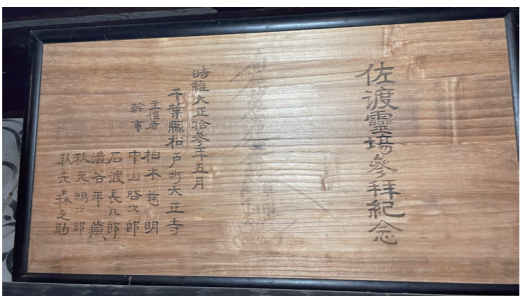 佐渡靈場參拜紀念
時維大正拾参年五月
千葉縣松戸町大正寺
主催者 柏木 明
幹事 中山啓次郎
石渡長九郎
澁谷平藏
秋元鴨次郎
秋元森之助